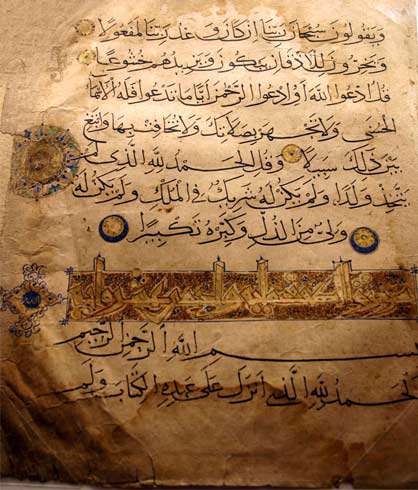 ويقولون سبحان ربنا ان كان وعد ربنا لمفعولا
ويخرون للاذقان يبكون ويزيدهم خشوعا
قل ادعوا الله او ادعوا الرحمن ايا ما تدعوا فله الاسما
الحسنى ولا تجهر بصلاتك ولا تخافت بها وابتغ
بين ذلك سبيلا وقل الحمد لله الذي لم
يتخذ ولدا ولم يكن له شريك في الملك ولم يكن له
ولي من الذل وكبره تكبيرا
بسم الله الرحمن الرحيم
الحمد لله الذي انزل على عبده الكتاب ولم